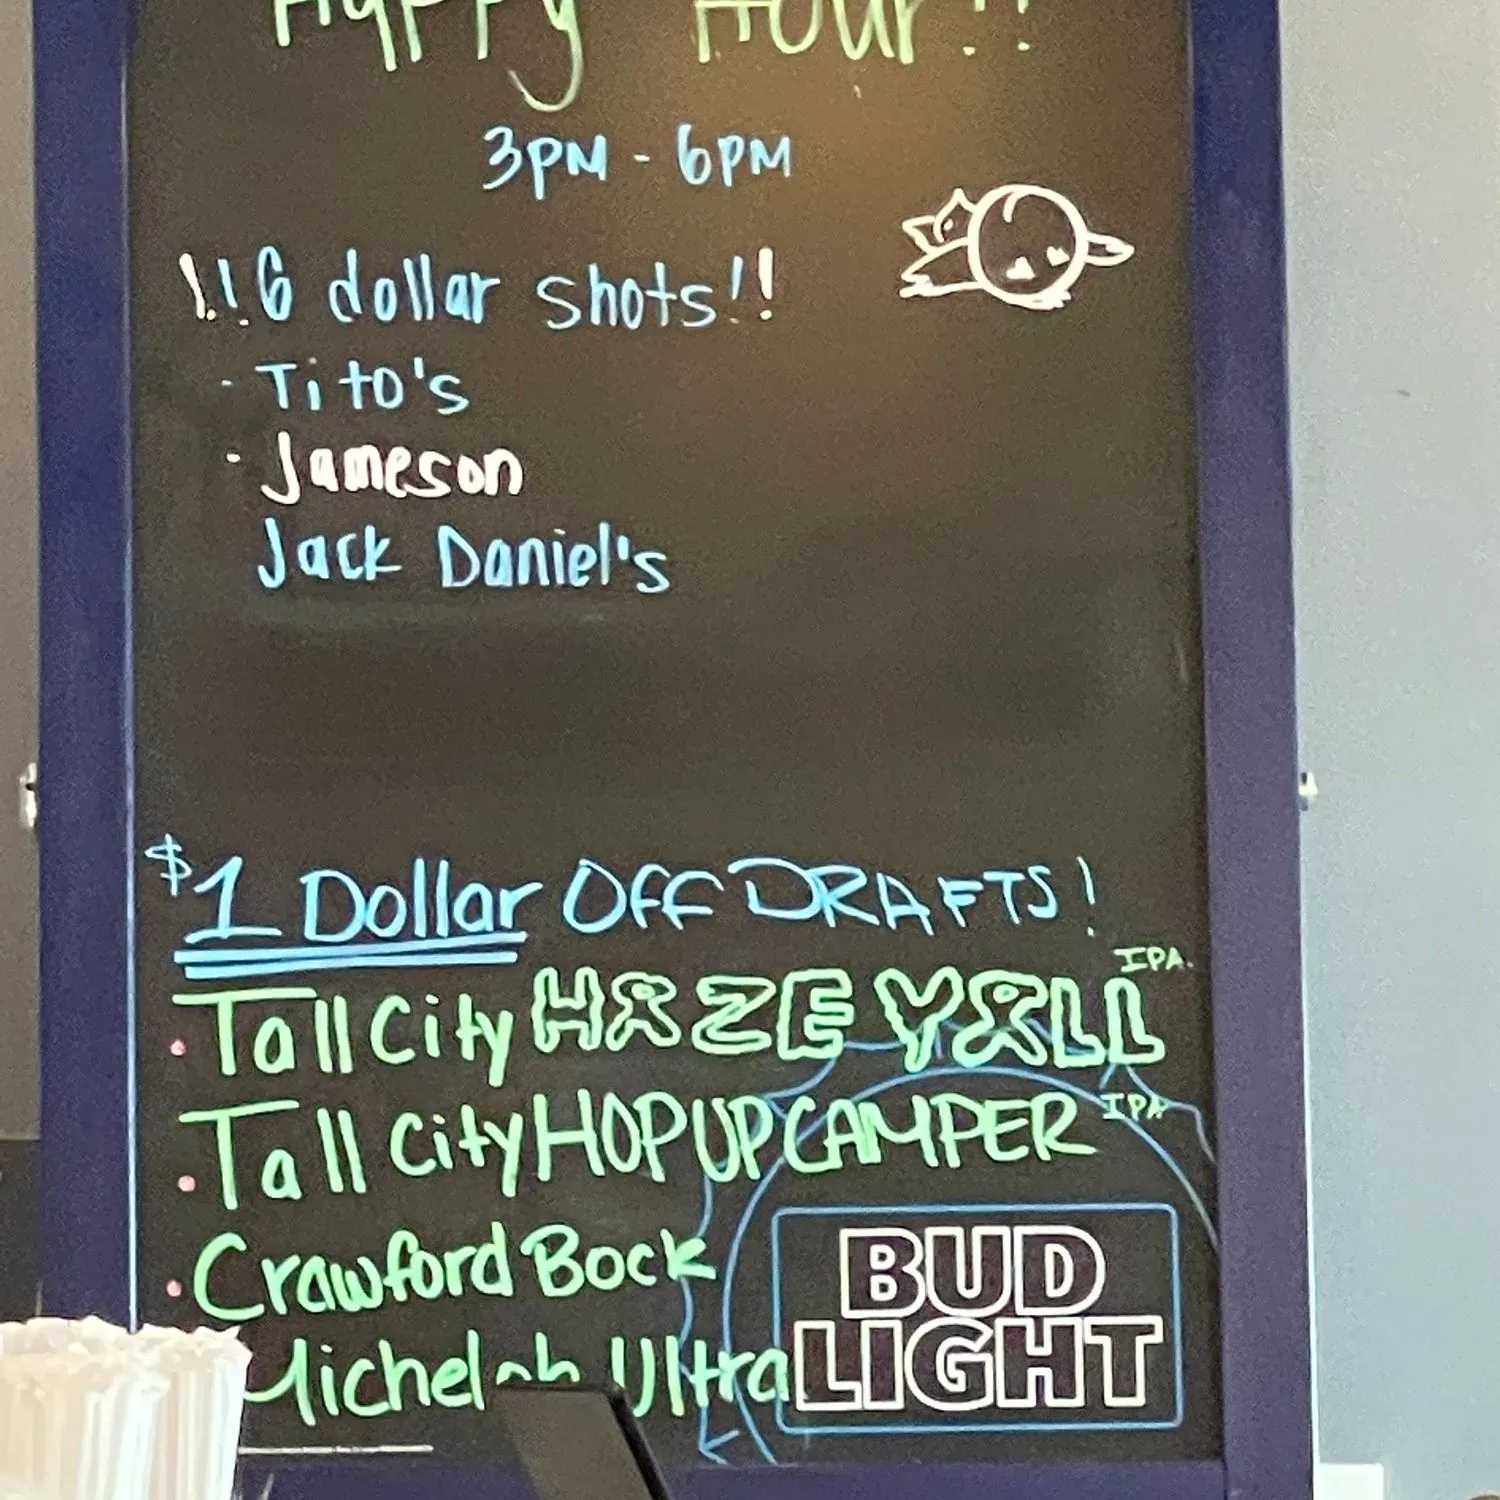 Happy Hour!!
3PM - 6PM
!!6 dollar shots!!
· Tito's
· Jameson
Jack Daniel's
$1 Dollar OFF DRAFTS!
· Tall City HAZE YALL IPA.
· Tall City HOP UP CAMPER IPA
· Crawford Bock
Michelob Ultra
BUD
LIGHT